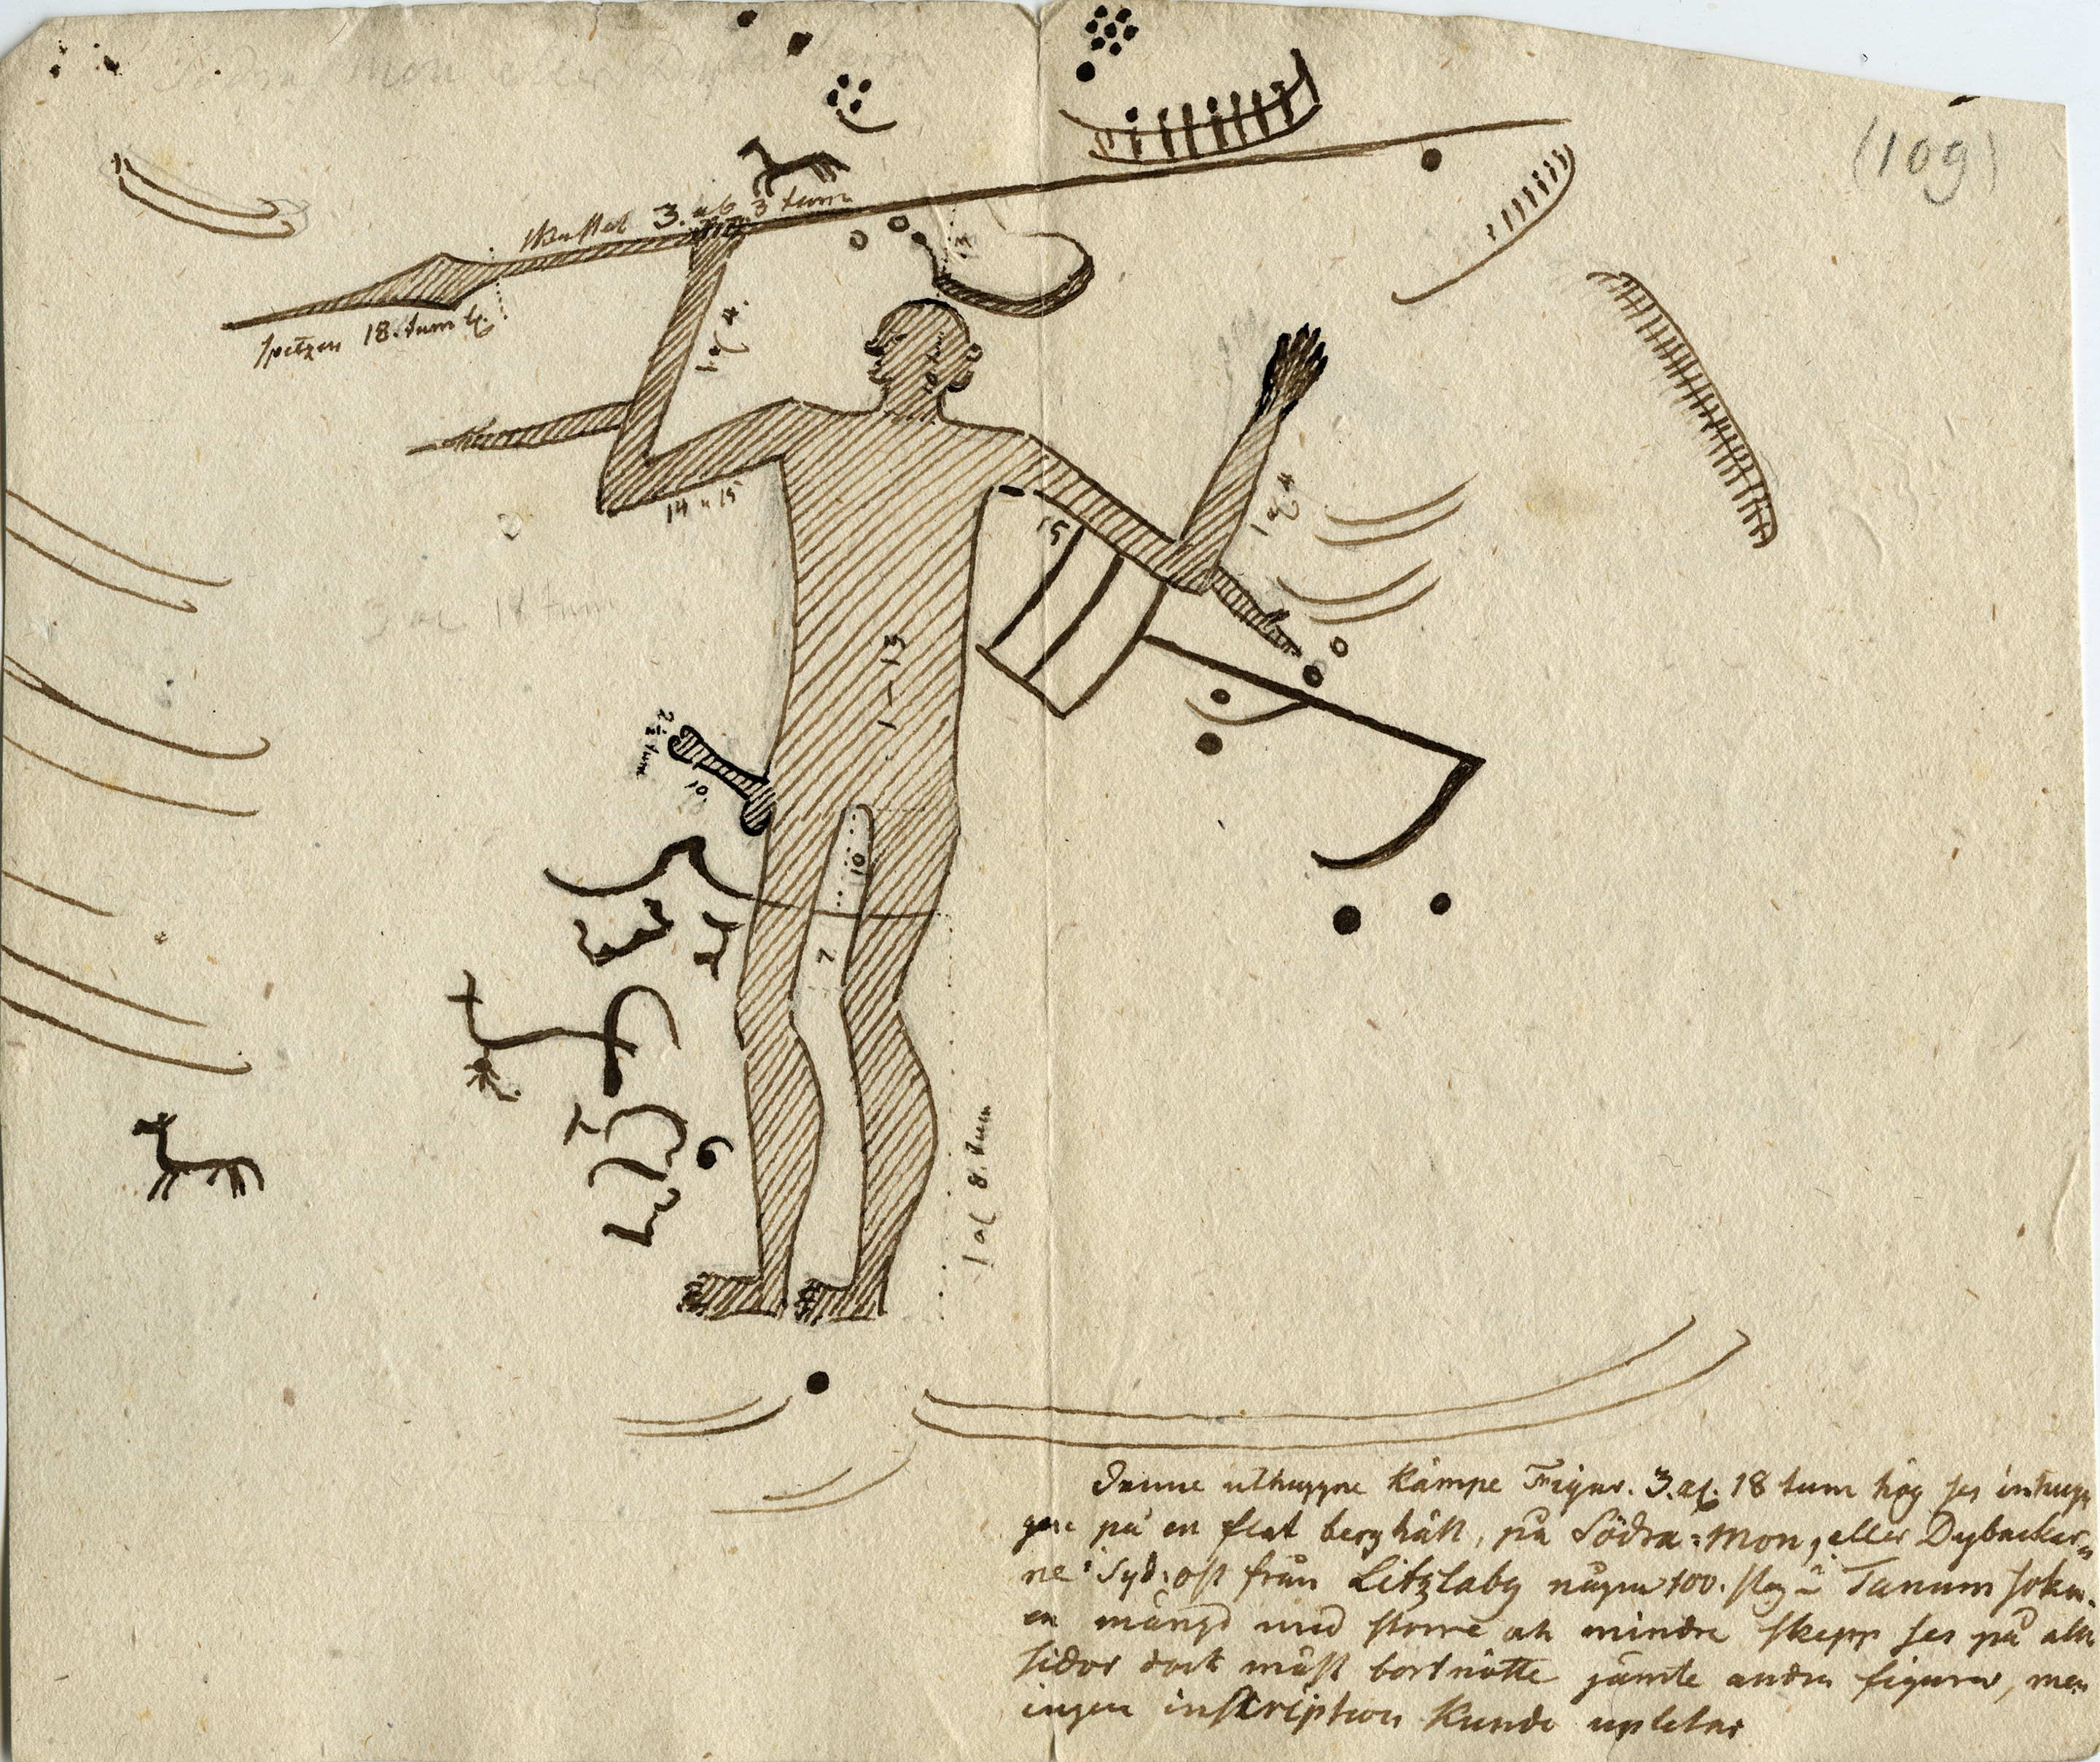 Södra Mon eller
(109)
Skaftet 3. al 3 tum
spetzen 18. tum l.
1 al 4.
10 tum
14 a 15
15
1 al 4
3 al 18 tum
1 – 13
2½ tum
10
10
7
1 al 8. tum
Denne uthuggne Kämpe Figur. 3. al. 18 tum hög ses inhug
gen på en flat berghäll, på Södra=Mon, eller Dybackar=
ne i Syd=ost från Litzlaby några 100. steg i Tanum sokn.
en mängd med storre och mindre skepp ses på alla
sidor dock mäst bortnötte jämte andra figurer, men
ingen inscription Kunde upletas